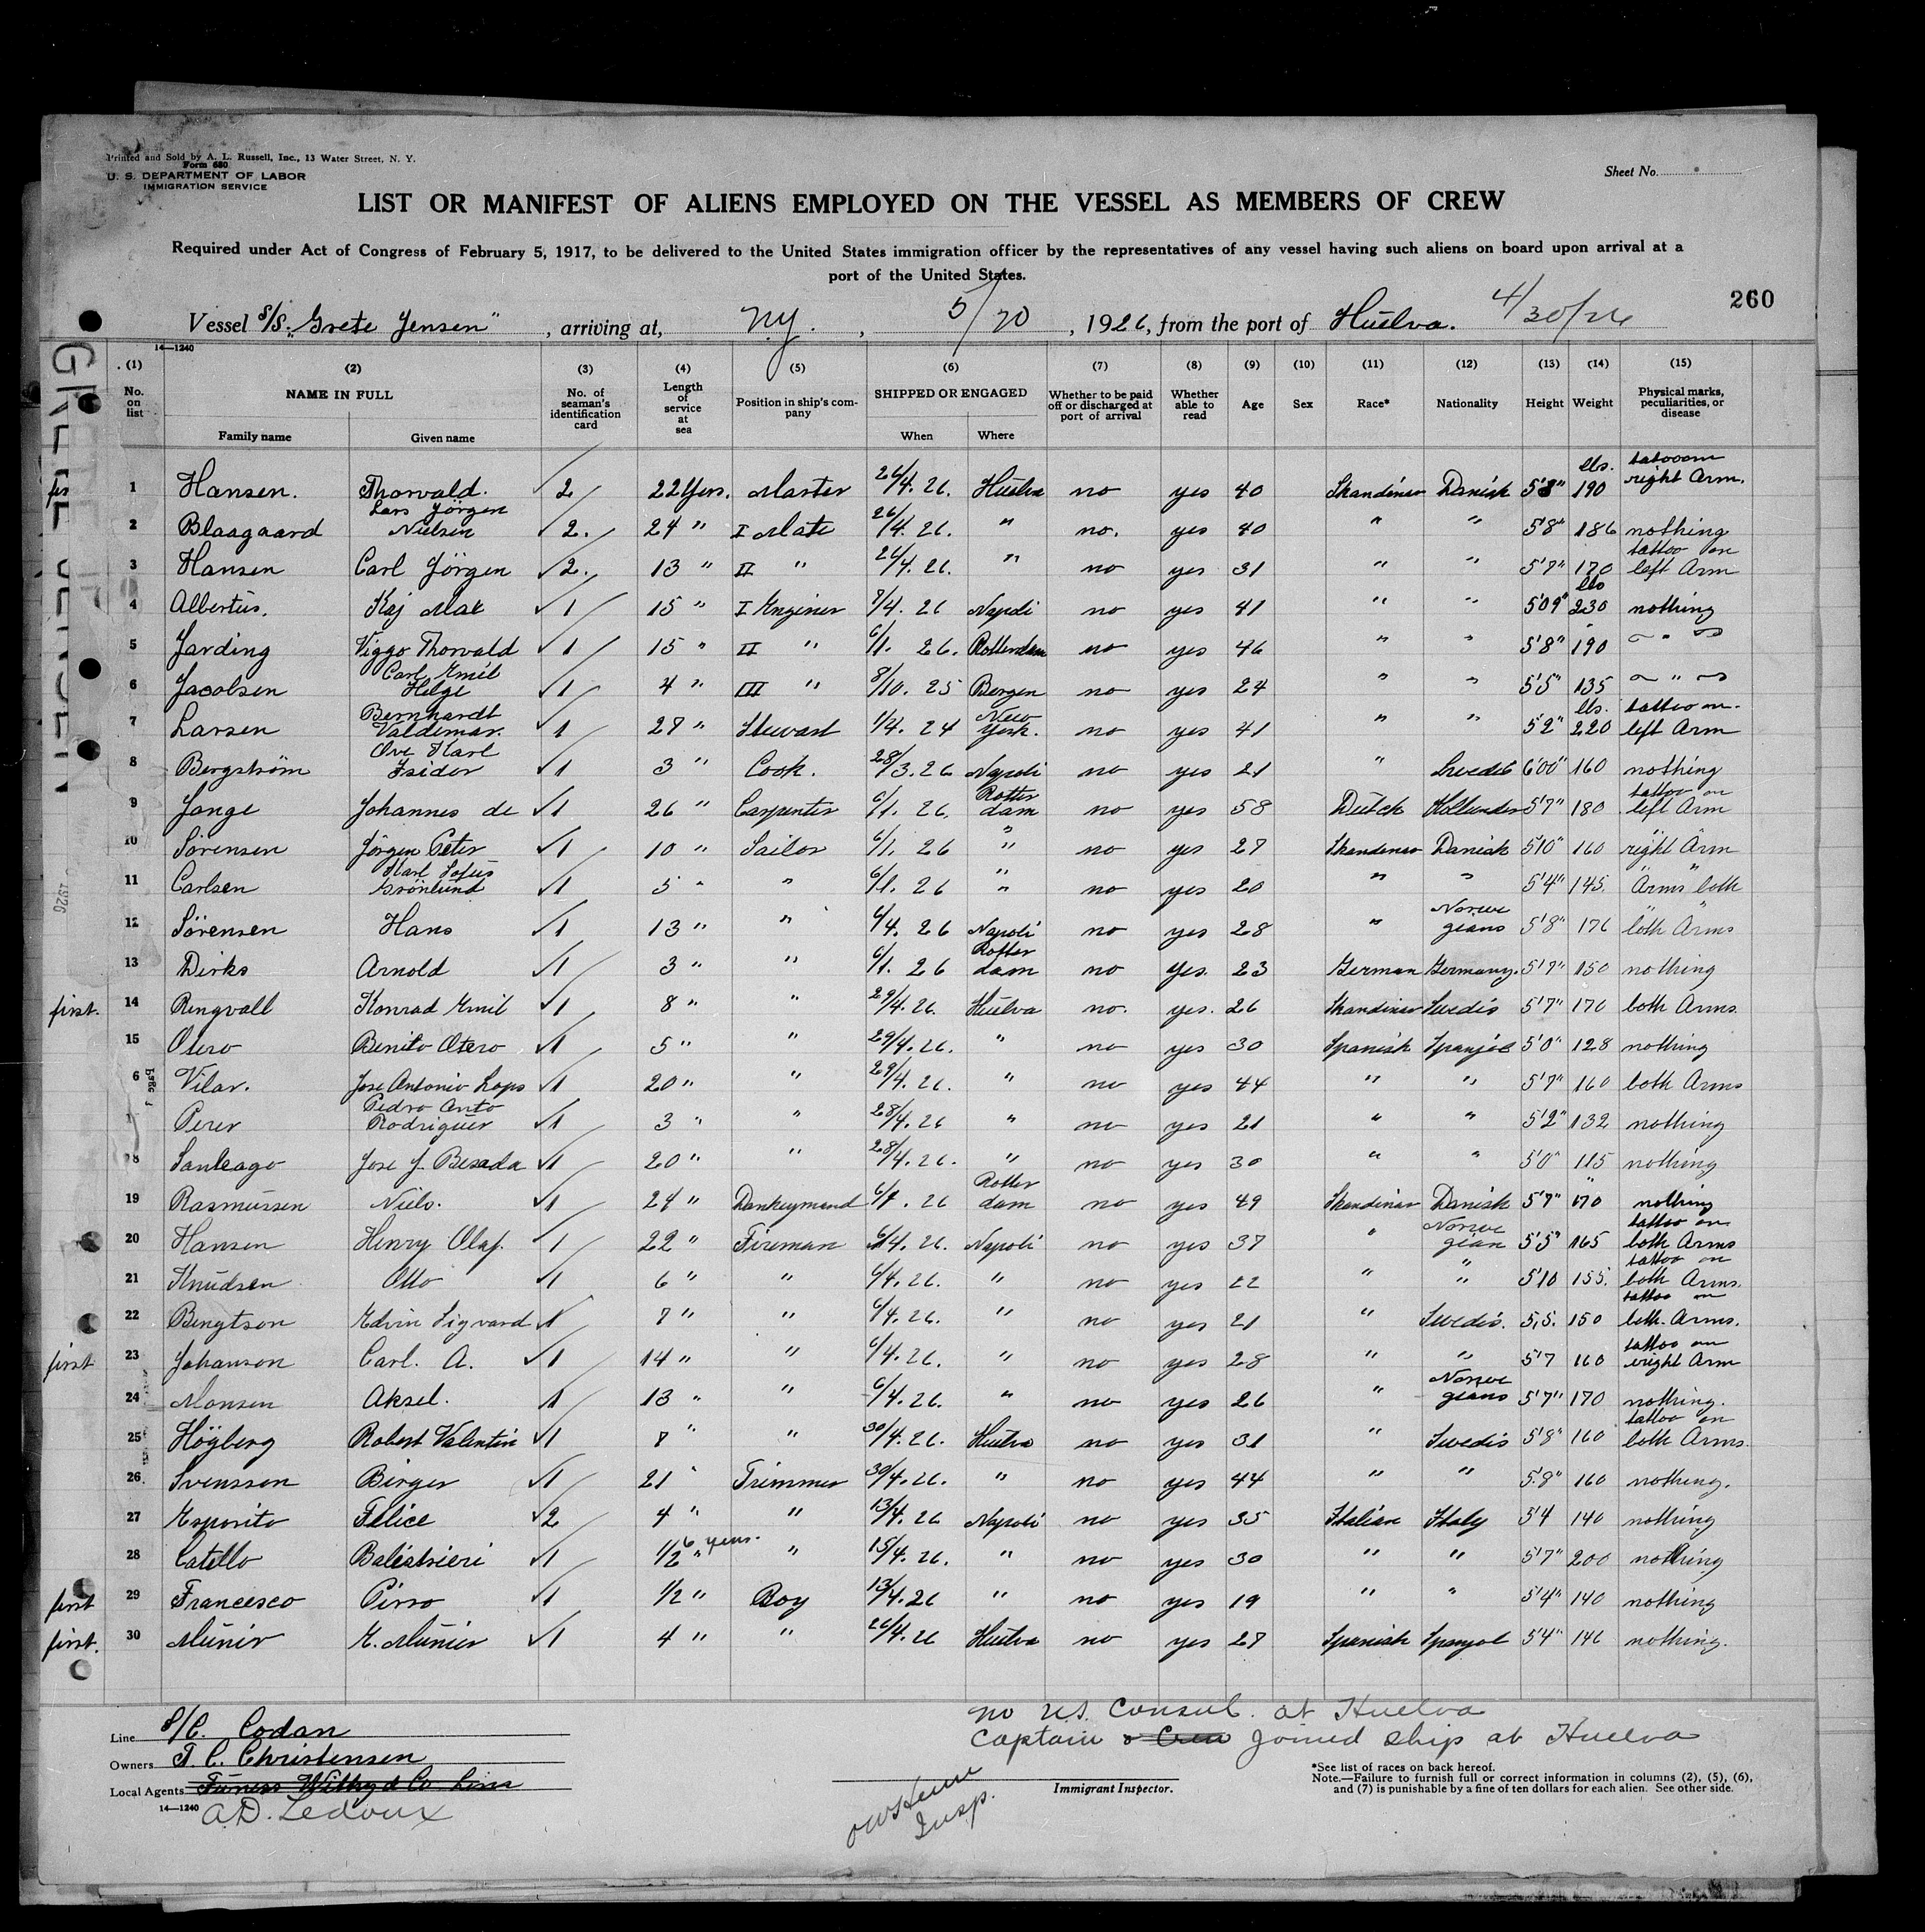 Printed and Sold by A. L. Russell, Inc., 13 Water Street, N. Y.
Form 680
U. S. DEPARTMENT OF LABOR
IMMIGRATION SERVICE
Sheet No.
LIST OR MANIFEST OF ALIENS EMPLOYED ON THE VESSEL AS MEMBERS OF CREW
Required under Act of Congress of February 5, 1917, to be delivered to the United States immigration officer by the representatives of any vessel having such aliens on board upon arrival at a
port of the United States.
260
Vessel S/S. "Grete Jensen", arriving at, N.Y., 5/20, 1926, from the port of Huelva. 4/30/26
14—1240
(1) (2) (3) (4) (5) (6) (7) (8) (9) (10) (11) (12) (13) (14) (15)
No. on list NAME IN FULL No. of seaman's identification card Length of service at sea Position in ship's company SHIPPED OR ENGAGED Whether to be paid off or discharged at port of arrival Whether able to read Age Sex Race* Nationality Height Weight Physical marks, peculiarities, or disease
Family name Given name When Where
1 Hansen. Thorvald. 2 22 Yers. Master 26/4. 26. Huelva no yes 40 Skandinav Danish 5'8" lbs. 190 tatooom right Arm.
2 Blaagaard Lars Jörgen Nielsen 2. 24 " I Mate 26/4. 26. " no. yes 40 " " 5'8" 186 nothing
3 Hansen Carl Jörgen 2. 13 " II " 26/4. 26. " no yes 31 " " 5'7" 170 tattoo on left Arm
4 Albertus. Kaj Max 1 15 " I Enginer 8/4. 26 Napoli no yes 41 " " 5'09" lbs 230 nothing
5 Jarding Viggo Thorvald 1 15 " II " 6/1. 26. Rotterdam no yes 46 " " 5'8" 190 "
6 Jacobsen Carl Emil Helge 1 4 " III " 8/10. 25 Bergen no yes 24 " " 5'5" 135 "
7 Larsen Bernhardt Valdemar. 1 27 " Stewart 1/4. 24 New York. no yes 41 " " 5'2" lbs. 220 tattoo on. left Arm
8 Bergström Ove Karl Isidor 1 3 " Cook. 28/3. 26 Napoli no yes 21 " Swedis 6'00" 160 nothing
9 Jange Johannes de 1 26 " Carpenter 6/1. 26. Rotterdam no yes 58 Deutch Hollander 5'7" 180 tattoo on left Arm
10 Sörensen Jörgen Peter 1 10 " Sailor 6/1. 26 " no yes 27 Skandinav Danish 5'10" 160 right Arm
11 Carlsen Karl Sofus Grönlund 1 5 " " 6/1. 26 " no yes 20 " " 5'4" 145. Arms both
12 Sörensen Hans 1 13 " " 6/4. 26 Napoli no yes 28 " Norwegians 5'8" 176 both Arms
13 Dirks Arnold 1 3 " " 6/1. 26 Rotterdam no yes. 23 German Germany. 5'7" 150 nothing
first. 14 Ringvall Konrad Emil 1 8 " " 29/4. 26. Huelva no. yes. 26 Skandinav Swedis 5'7" 170 both Arms.
15 Otero Benito Otero 1 5 " " 29/4. 26. " no yes 30 Spanish Spanjol 5'0" 128 nothing
6 Vilar. Jose Antonio Lops 1 20 " " 29/4. 26. " no yes 44 " " 5'7" 160 both Arms
1 Perer Pedro Anto Rodriguer 1 3 " " 28/4. 26 " no yes 21 " " 5'2" 132 nothing
18 Santeago Jose J. Besada 1 20 " " 28/4. 26. " no yes 30 " " 5'0" 115 nothing
19 Rasmussen Niels. 1 24 " Dankeymand 6/1. 26 Rotterdam no yes 49 Skandinav Danish 5'7" 170 nothing
20 Hansen Henry Olaf. 1 22 " Fireman 6/4. 26. Napoli no yes 37 " Norwegian 5'5" 165 tattoo on both Arms
21 Knudsen Otto 1 6 " " 6/4. 26. " no yes 22 " " 5'10 155. tattoo on both Arms.
22 Bengtson Edvin Sigvard 1 7 " " 6/4. 26. " no yes 21 " Swedis. 5,5. 150 tattoo on both. Arms.
first 23 Johanson Carl. A. 1 14 " " 6/4. 26. " no yes 28 " " 5'7 160 tattoo on wright Arm
24 Monsen Aksel. 1 13 " " 6/4. 26. " no yes 26 " Norwegians 5'7" 170 nothing.
25 Högberg Robert Valentin 1 8 " " 30/4. 26. Huelva no yes 31 " Swedis 5'8" 160 tattoo on both Arms.
26 Svensson Birger 1 21 " Trimmer 30/4. 26. " no yes 44 " " 5.8" 160 nothing.
27 Esposito Felice 2 4 " " 13/4. 26 Napoli no yes 35 Italian Italy 5'4 140 nothing
28 Catello Baléstrieri 1 1/2 " 6 yers. " 13/4. 26. " no yes 30 " " 5'7" 200 nothing
first 29 Francesco Pirro 1 1/2 " Boy 13/4. 26 " no yes 19 " " 5'4" 140 nothing
first. 30 Munir E. Munier 1 4 " " 26/4. 26 Huelva no yes 27 Spanish Spanjol 5'4" 146 nothing.
Line S/C. Codan
Owners T. C. Christensen
Local Agents Furness Withy & Co Line
14—1240
A.D. Ledoux
no U.S. Consul. at Huelva
Captain & Crew joined ship at Huelva
Insp.
Immigrant Inspector.
*See list of races on back hereof.
Note.—Failure to furnish full or correct information in columns (2), (5), (6),
and (7) is punishable by a fine of ten dollars for each alien. See other side.